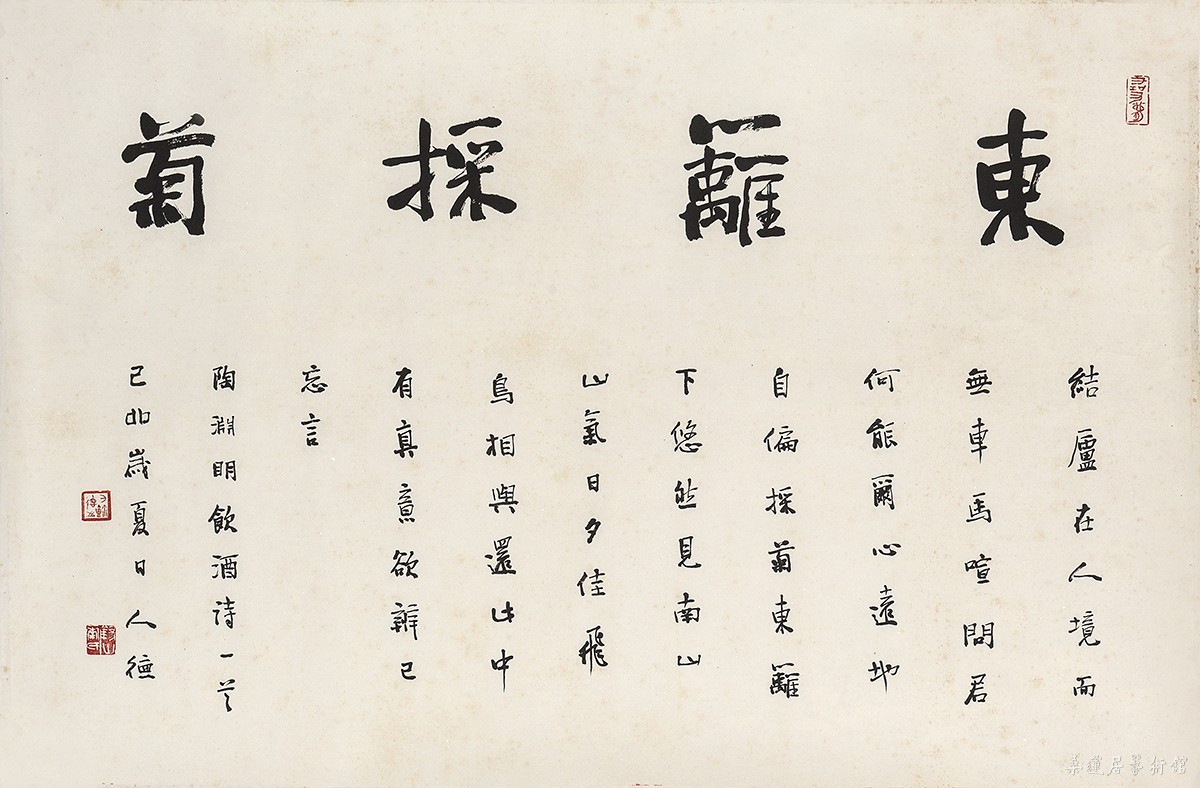 東籬採菊
結廬在人境而
無車馬喧問君
何能爾心遠地
自偏採菊東籬
下悠然見南山
山氣日夕佳飛
鳥相與還此中
有真意欲辨已
忘言
陶淵明飲酒詩一首
己卯歲夏日人德
桑蓮居藝術館